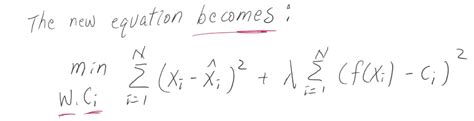 The new equation becomes:
min W.Ci N∑i=1 (xi - x̂i)² + λ N∑i=1 (f(xi) - Ci)²